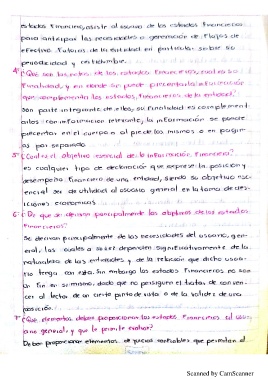 estados Financieros, asiste al usuario de los estados Financieros
para anticipar las necesidades o generación de Flujos de
efectivo Futuros de la entidad en particular sobre su
periodicidad y certidumbre.
4- ¿Qué son las notas de los estados Financieros, cuál es su
Finalidad, y en donde se puede presentar la información
que complementa los estados Financieros de la entidad?
son parte integrante de ellos, su Finalidad es complement
arlos con información relevante, la información se puede
presentar en el cuerpo o al pie de los mismos o en pagin
as por separado.
5- ¿Cuál es el objetivo esencial de la información Financiera?
es cualquier tipo de declaración que exprese la posición y
desempeño Financiero de una entidad, siendo su objetivo es
encial ser de utilidad al usuario general en la toma de decis
iones económicas.
6- ¿De que se derivan principalmente los objetivos de los estados
Financieros?
Se derivan principalmente de las necesidades del usuario, gen
eral, las cuales a su vez dependen significativamente de la
naturaleza de las entidades y de la relación que dicho usua
rio tenga con esta. Sin embargo los estados Financieros no son
un fin en si mismos, dado que no persiguen el tratar de conven
cer al lector de un cierto punto de vista o de la validez de una
posición.
7- ¿Qué elementos deben proporcionar los estados Financieros al usu
ario general, y que le permite evaluar?
Deben proporcionar elementos de juicio confiables que permitan al
Scanned by CamScanner